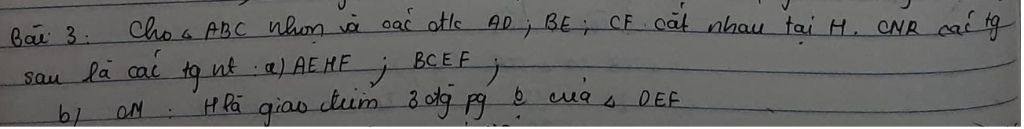 Bài 3: Cho △ ABC nhọn và các đ/c AD; BE; CF cắt nhau tại H. CNR các tg
sau là các tg nt: a) AEHF; BCEF;
b) CM: H là giao điểm 3 đg pg của △ DEF